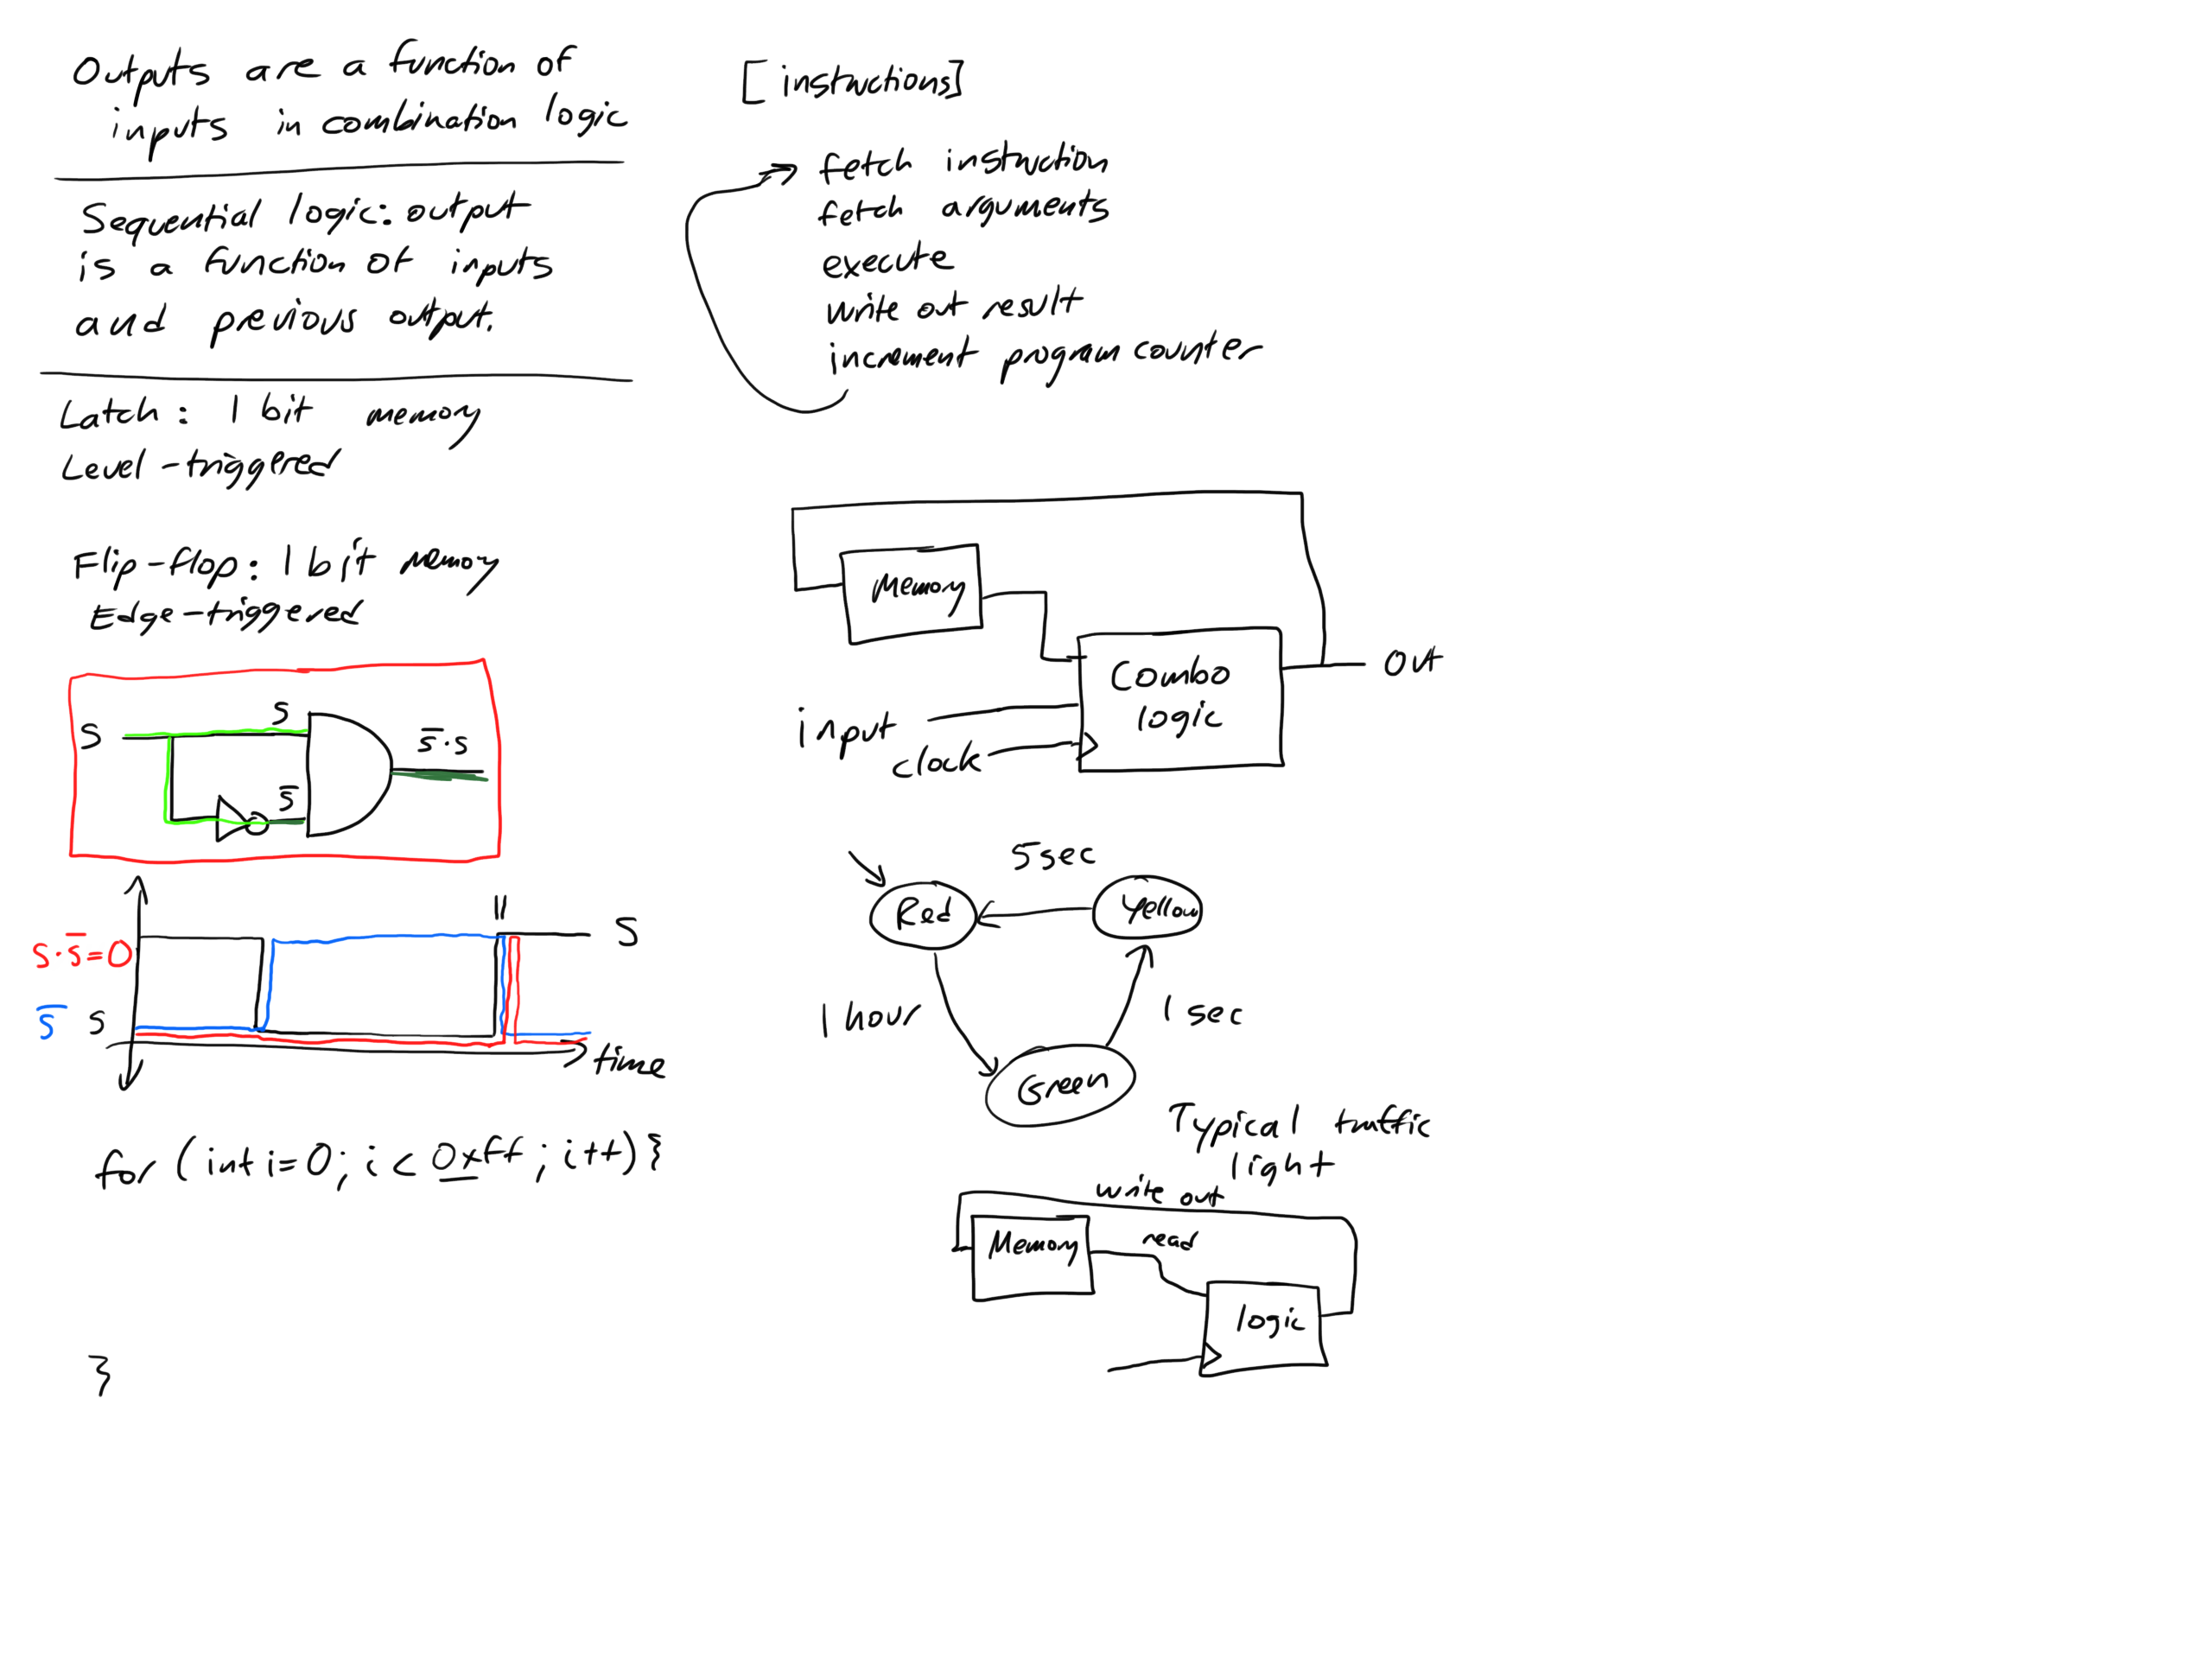 Outputs are a function of
inputs in combination logic
Sequential logic: output
is a function of inputs
and previous output.
Latch: 1 bit memory
Level-triggered
Flip-flop: 1 bit memory
Edge-triggered
S
S
S̅
S̅·S
S
S·S̅=0
S̅ S
time
for (int i=0; i < 0xff; i++) }
}
[instructions]
fetch instruction
fetch arguments
execute
write out result
increment program counter
Memory
Combo
logic
Out
input
clock
5 sec
Red
Yellow
1 hour
1 sec
Green
Typical traffic
light
write out
Memory
read
logic